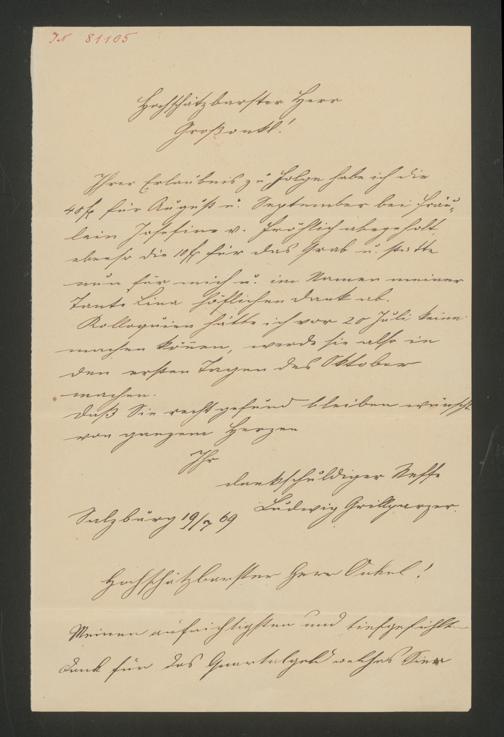 IN 81105
Hochschätzbarster Herr
Großonkl!
Ihrer Erlaubnis zu Folge habe ich die
40 fl für August u. September bei Fräu-
lein Josefine v. Fröhlich abgeholt
ebenso die 10 fl für das Grab u. statte
nun für mich u. im Namen meiner
Tante Lina höflichen Dank ab.
Kolloquien hätte ich vor 20 Juli keine
machen können, werde sie also in
den ersten Tagen des Oktober
machen.
Daß Sie recht gesund bleiben wünscht
von ganzem Herzen
Ihr
dankschuldiger Neffe
Ludwig Grillparzer.
Salzburg 19/7 69
Hochschätzbarster Herr Onkel!
Meinen aufrichtigsten und tiefgefühlten
Dank für das Quartalgeld welches